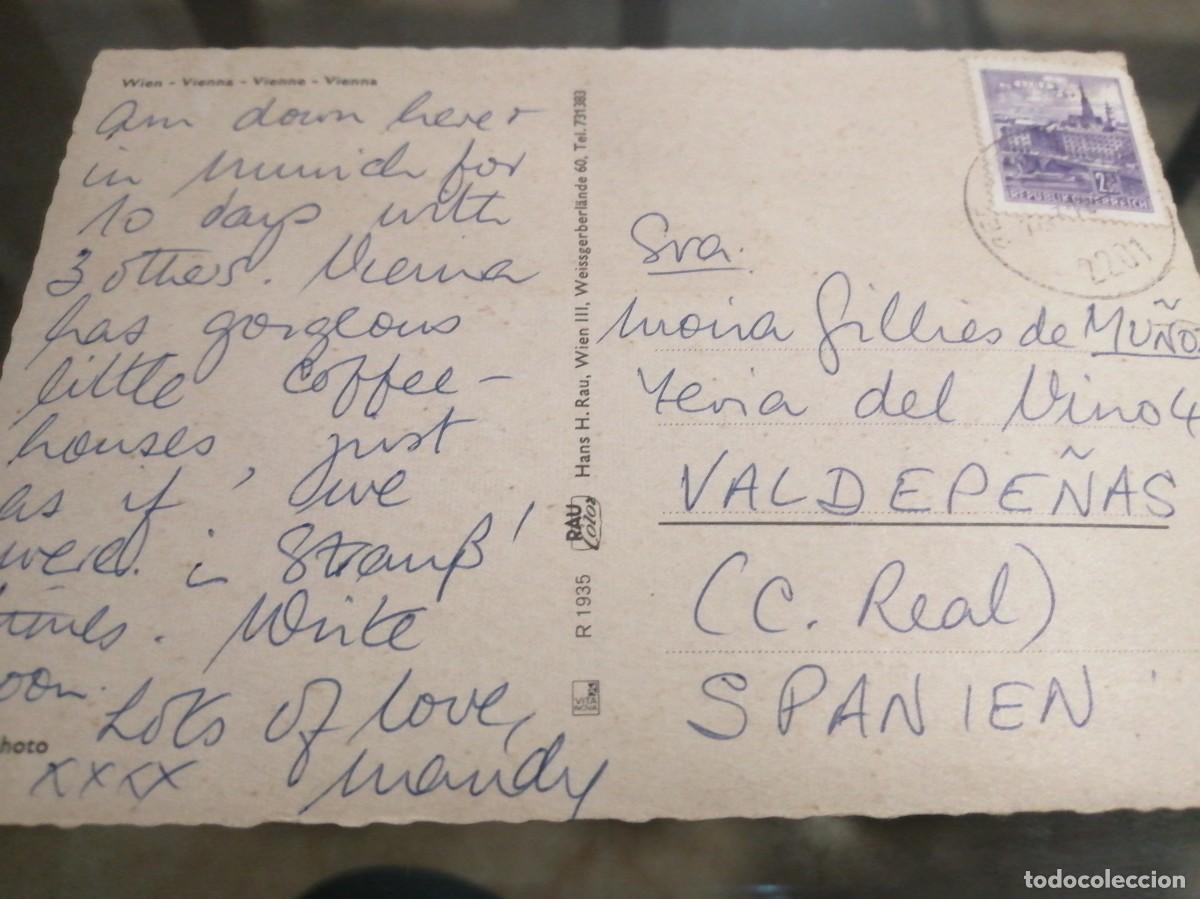 Wien - Vienna - Vienne - Vienna
Am down here +
in Munich for
10 days with
3 others. Vienna
has gorgeous
little coffee-
houses, just
as if
were in Strauß'
times. Write
oon.
Lots of love,
xxxx Mandy
hoto
Hans H. Rau, Wien III, Weissgerberlände 60, Tel. 731383
RAU Color
R 1935
REPUBLIK ÖSTERREICH
2201
Sra.
Moira Gillies de MUÑO
del Vino 4
VALDEPEÑAS
(C. Real)
SPANIEN
todocoleccion